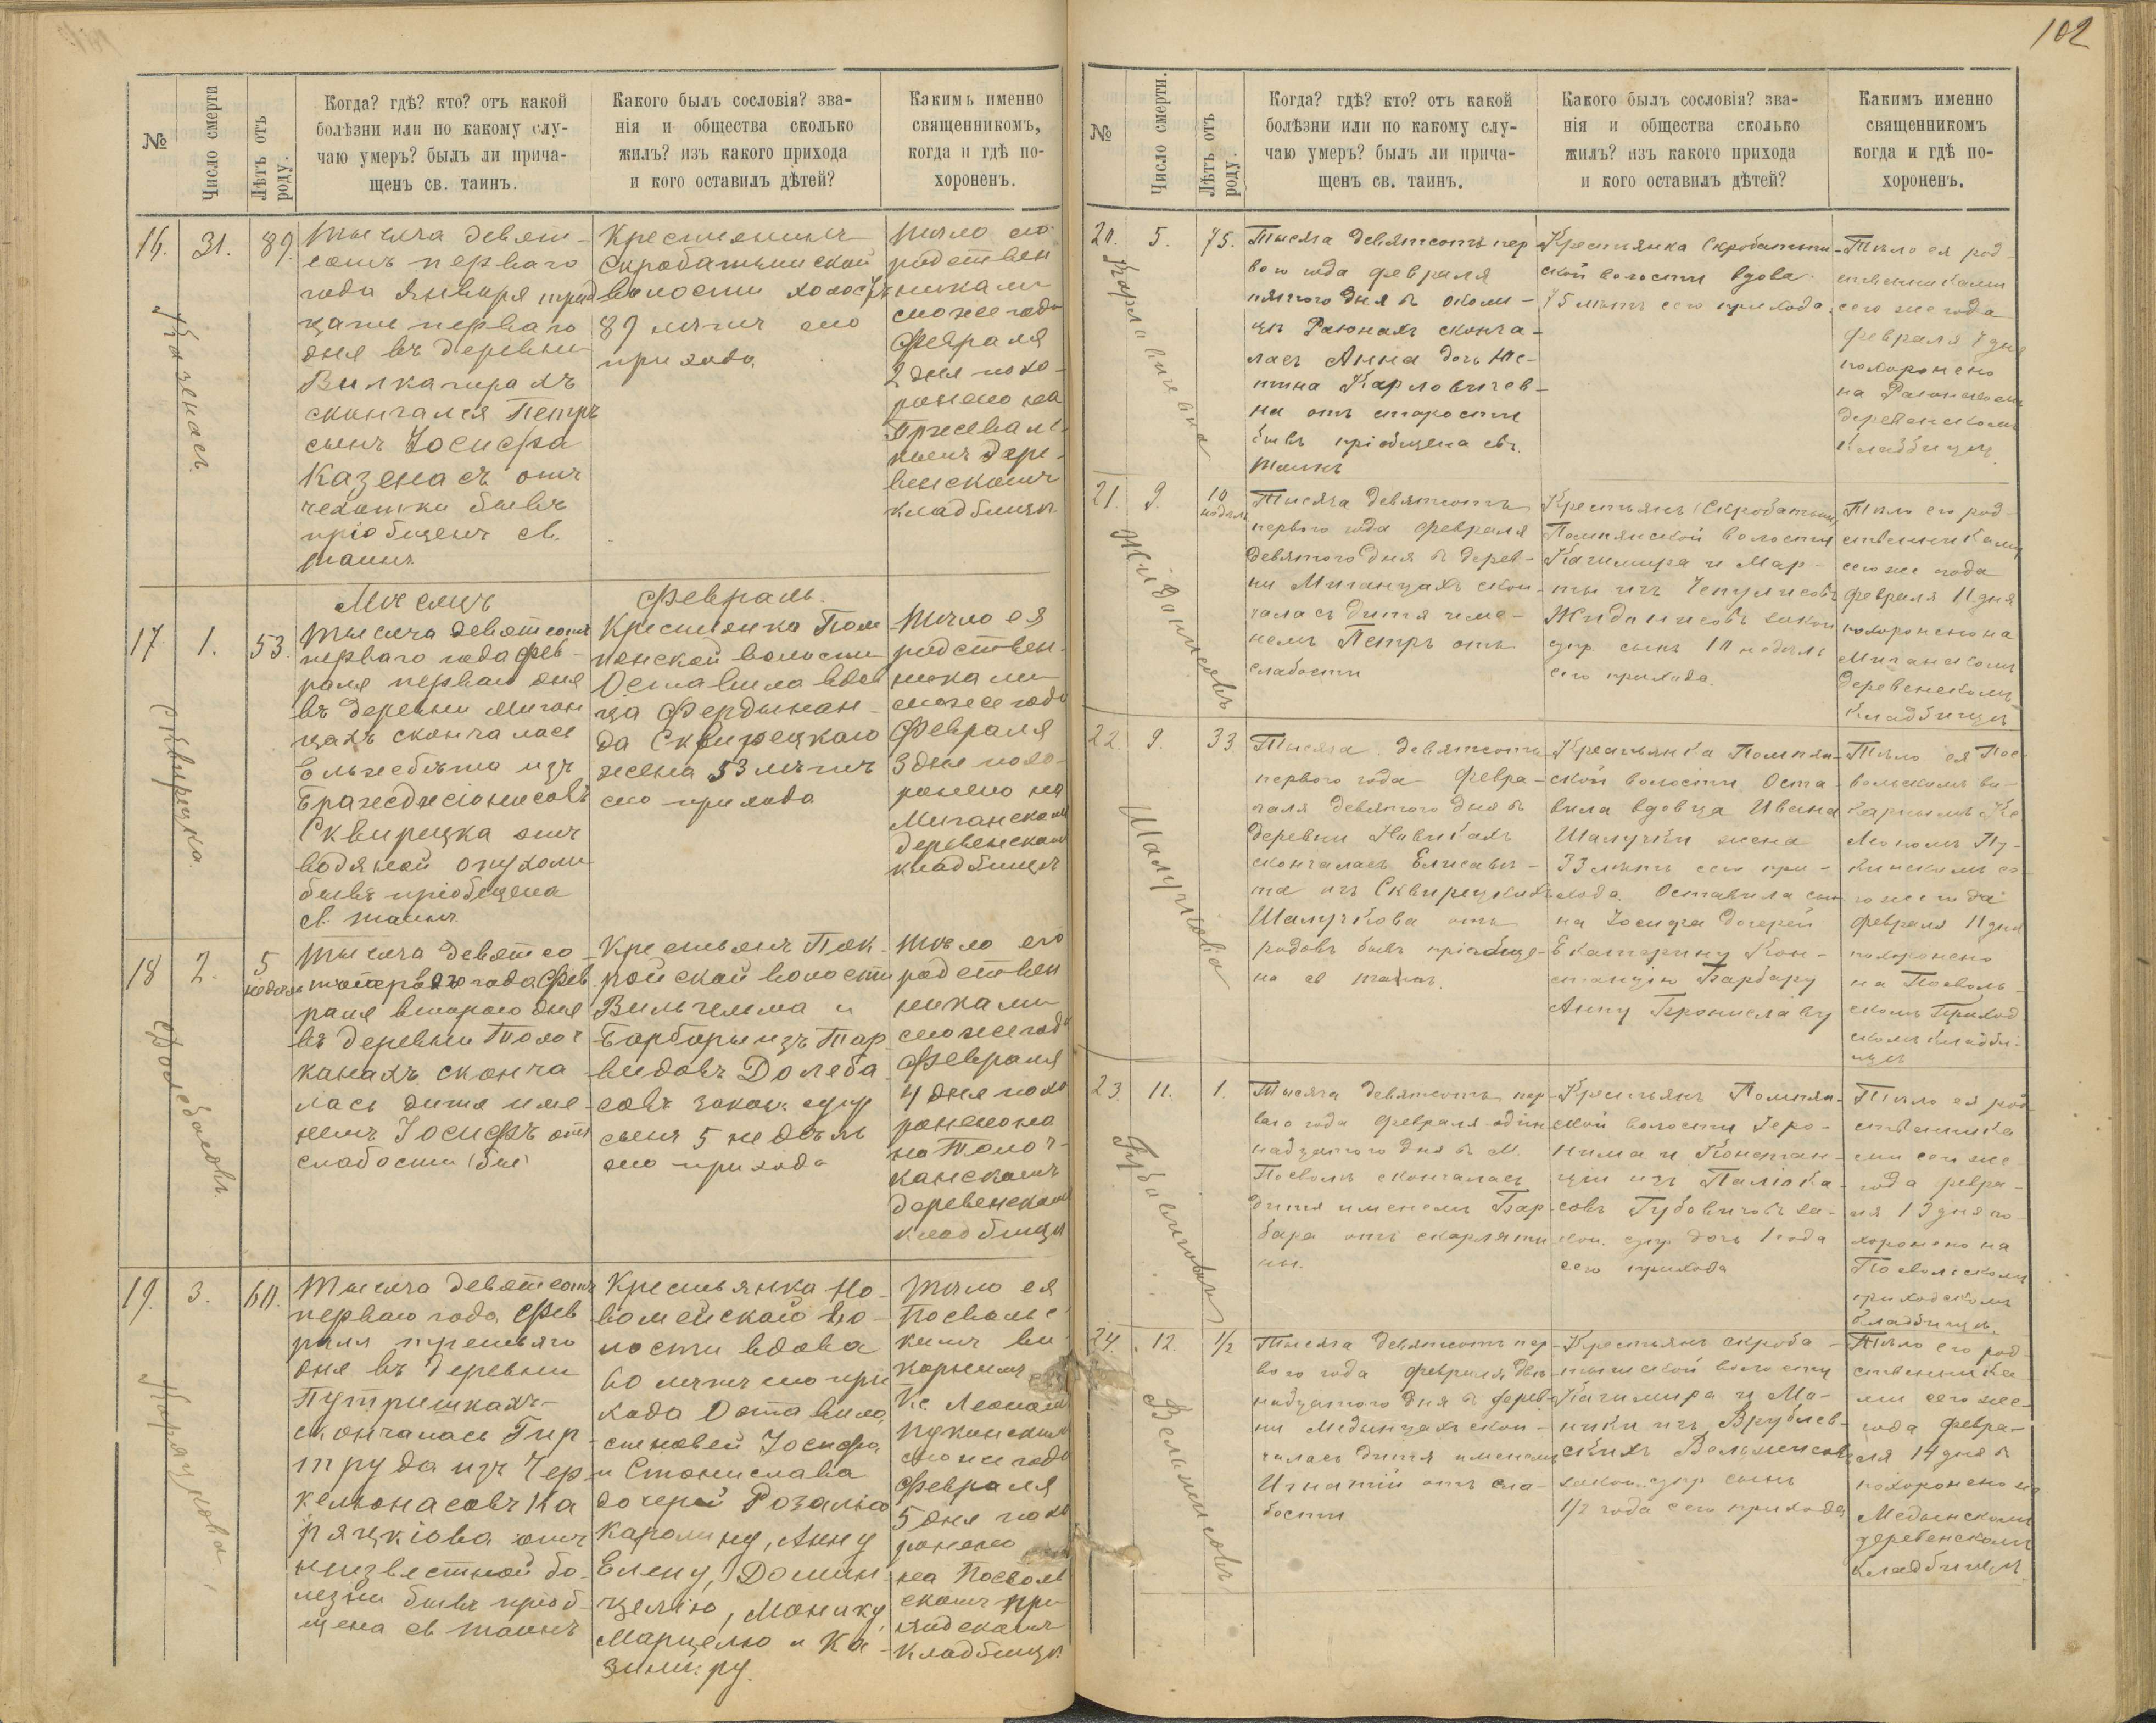 102
№
Число смерти
Лѣтъ отъ роду.
Когда? гдѣ? кто? отъ какой
болѣзни или по какому слу-
чаю умеръ? былъ ли прича-
щенъ св. таинъ.
Какого былъ сословія? зва-
нія и общества сколько
жилъ? изъ какого прихода
и кого оставилъ дѣтей?
Какимъ именно
священникомъ,
когда и гдѣ по-
хороненъ.
16.
31.
89.
Казенасъ.
Тысяча девят-
сотъ перваго
года Января трид
цать перваго
дня въ деревни
Вилкапирахъ
скончался Петръ
сынъ Іосифа
Казенасъ отъ
чехотки бывъ
пріобщенъ св.
таинъ
Крестянинъ
Скробатынской
волости холостъ
89 лѣтъ сего
прихода.
Тѣло его
родствен
никами
сегоже года
Февраля
2 дня похо-
ронено на
деревенскомъ
кладбищѣ
Мѣсяцъ
Февраль.
17
1.
53.
Сквирецка.
Тысяча девятсотъ
перваго года Фев-
раля перваго дня
въ деревни Миган
цахъ скончалась
Ельжебѣта изъ
Сквирецка отъ
водяной опухоли
бывъ пріобщена
св. таинъ
Крестянка Пом
пянской волости
Оставила вдов
ца Фердынан-
да Сквирецкаго
жена 53 лѣтъ
сего прихода
Тѣло ея
родствен
никами
сегоже года
Февраля
3 дня похо-
ронено на
Миганскомъ
деревенскомъ
кладбищѣ
18
2.
5
недѣль
Долебасовъ.
Тысяча девятсо
тъ перваго года Фев
раля второго дня
въ деревни Толоч
канахъ сконча
лась дитя име-
немъ Іосифъ отъ
слабости
Крестьянъ Пок-
ройской волости
Вильгельма и
Барбары изъ Тар
видовъ Долеба
совъ закон. супр
сынъ 5 недѣль
сего прихода
Тѣло его
родствен
никами
сегоже года
Февраля
4 дня похо
ронено на
на Толоч-
канскомъ
деревенскомъ
кладбищѣ
19.
3.
60.
Каряцкова.
Тысяча девятсотъ
перваго года, Фев
раля третьяго
дня въ деревни
Путришкахъ
скончалась Гер
труда изъ Чер-
кельонасовъ Ка
ряцкіова отъ
неизвестной бо-
лезни бывъ пріоб-
щена св таинъ
Крестьянка Но-
вомейского во-
лости вдова
60 лѣтъ сего при
хода Оставила
сыновей Іосифа
и Станислава
дочерей Розалію
Каролину, Анну
Елену, Домин-
целію, Монику,
Марцелю и Ка-
зимиру.
Тѣло ея
Посвольс
кимъ ви
карнымъ
Кс. Леономъ
сегоже года
Февраля
5 дня похо
ронено
на Посволь
скомъ при
ходскомъ
кладбищѣ.
№
Число смерти.
Лѣтъ отъ роду.
Когда? гдѣ? кто? отъ какой
болѣзни или по какому слу-
чаю умеръ? былъ ли прича-
щенъ св. таинъ.
Какого былъ сословія? зва-
нія и общества сколько
жилъ? изъ какого прихода
и кого оставилъ дѣтей?
Какимъ именно
священникомъ
когда и гдѣ по-
хороненъ.
20.
5.
75.
Карловичевна
Тысяча девятсотъ пер
вого года февраля
пятого дня в околи-
цѣ Раюнахъ сконча-
лась Анна дочь Юс-
тина Карловичев-
на отъ старости
бывъ пріобщена св.
таинъ
Крестьянка Скробатын-
ской волости вдова
75 лѣтъ сего прихода.
Тѣло ея род-
ственниками
сего же года
февраля 7 дня
похоронено
на Раюнскомъ
деревенскомъ
кладбищѣ.
21.
9.
10
недѣль
Жиданисовъ
Тысяча девятсотъ
первого года февраля
девятого дня в дерев-
ни Миганцахъ скон-
чалась дитя име-
немъ Петръ отъ
слабости
Крестьянъ (Скробатын
Помпянской волости
Казимира и Мар-
ты изъ Чепулисовъ
Жиданисовъ закон
супр сынъ 10 недѣль
сего прихода.
Тѣло его род-
ственниками
сегоже года
февраля 11 дня
похоронено на
Миганскомъ
деревенскомъ
кладбищѣ
22.
9.
33.
Шалучкова
Тысяча девятсотъ
первого года февра-
ля девятого дня в
деревни Новикахъ
скончалась Елисаве-
та изъ Сквирецкихъ
Шалучкова отъ
родовъ бывъ пріобще-
на св таинъ.
Крестьянка Помпян-
ской волости Оста-
вила вдовца Ивана
Шалучки жена
33 лѣтъ сего при-
хода. Оставила сы
на Іосифа дочерей
Екатерину Кон-
станцію Барбару
Анну Брониславу
Тѣло ея Пос-
вольскимъ ви-
карнымъ Кс
Леономъ
сегоже года
февраля 11 дня
похоронено
на Посволь-
скомъ Приход
скомъ кладби-
щѣ
23.
11.
1.
Губовичовъ
Тысяча девятсотъ пер
вого года февраля один
надцатого дня в М.
Посволѣ скончалась
дитя именемъ Бар-
бара отъ скарляти
ны.
Крестьянъ Помпян-
ской волости Іеро-
нима и Констан-
ціи изъ Паліока-
совъ Губовичовъ за-
кон. супр дочь 1 года
сего прихода
Тѣло ея род
ственника
ми сего же
года февра-
ля 13 дня по-
хоронено на
Посвольскомъ
приходскомъ
кладбищѣ.
24.
12.
1/2
Вельжисовъ
Тысяча девятсотъ пер
вого года февраля две
надцатого дня в дерев
ни Медынцахъ скон-
чалась дитя именемъ
Игнатій отъ сла-
бости
Крестьянъ скроба-
тынской волости
Казимира и Мо-
ники изъ Врублев-
скихъ Вельжисовъ
закон. супр сынъ
1/2 года сего прихода
Тѣло его род-
ственника
ми сего же
года февра-
ля 14 дня в
похоронено на
Медынскомъ
деревенскомъ
кладбищѣ.